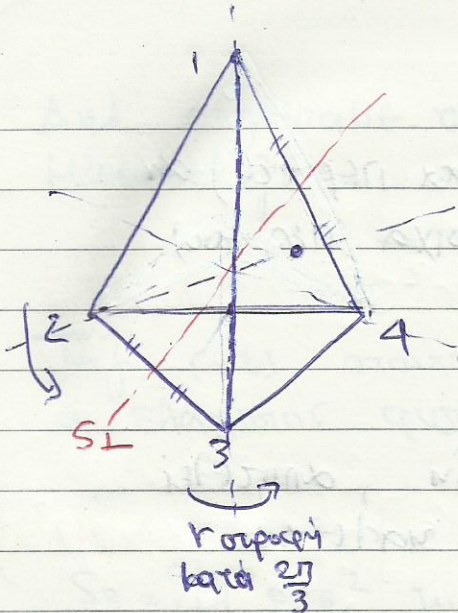 1
2
4
ST
3
r στροφή
κατά 2π/3